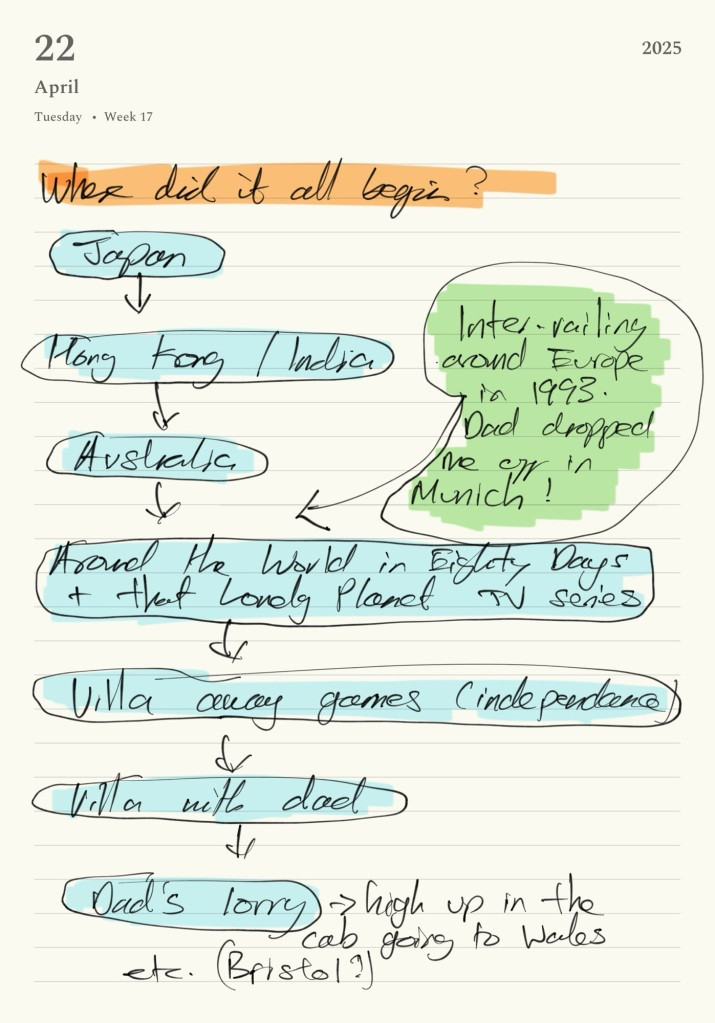 22
2025
April
Tuesday • Week 17
Where did it all begin?
Japan
Hong Kong / India
Inter-railing
around Europe
in 1993.
Dad dropped
me off in
Munich!
Australia
Around the World in Eighty Days
+ that Lonely Planet TV series
Villa away games (independence)
Villa with dad
Dad's lorry -> high up in the
cab going to Wales
etc. (Bristol?)